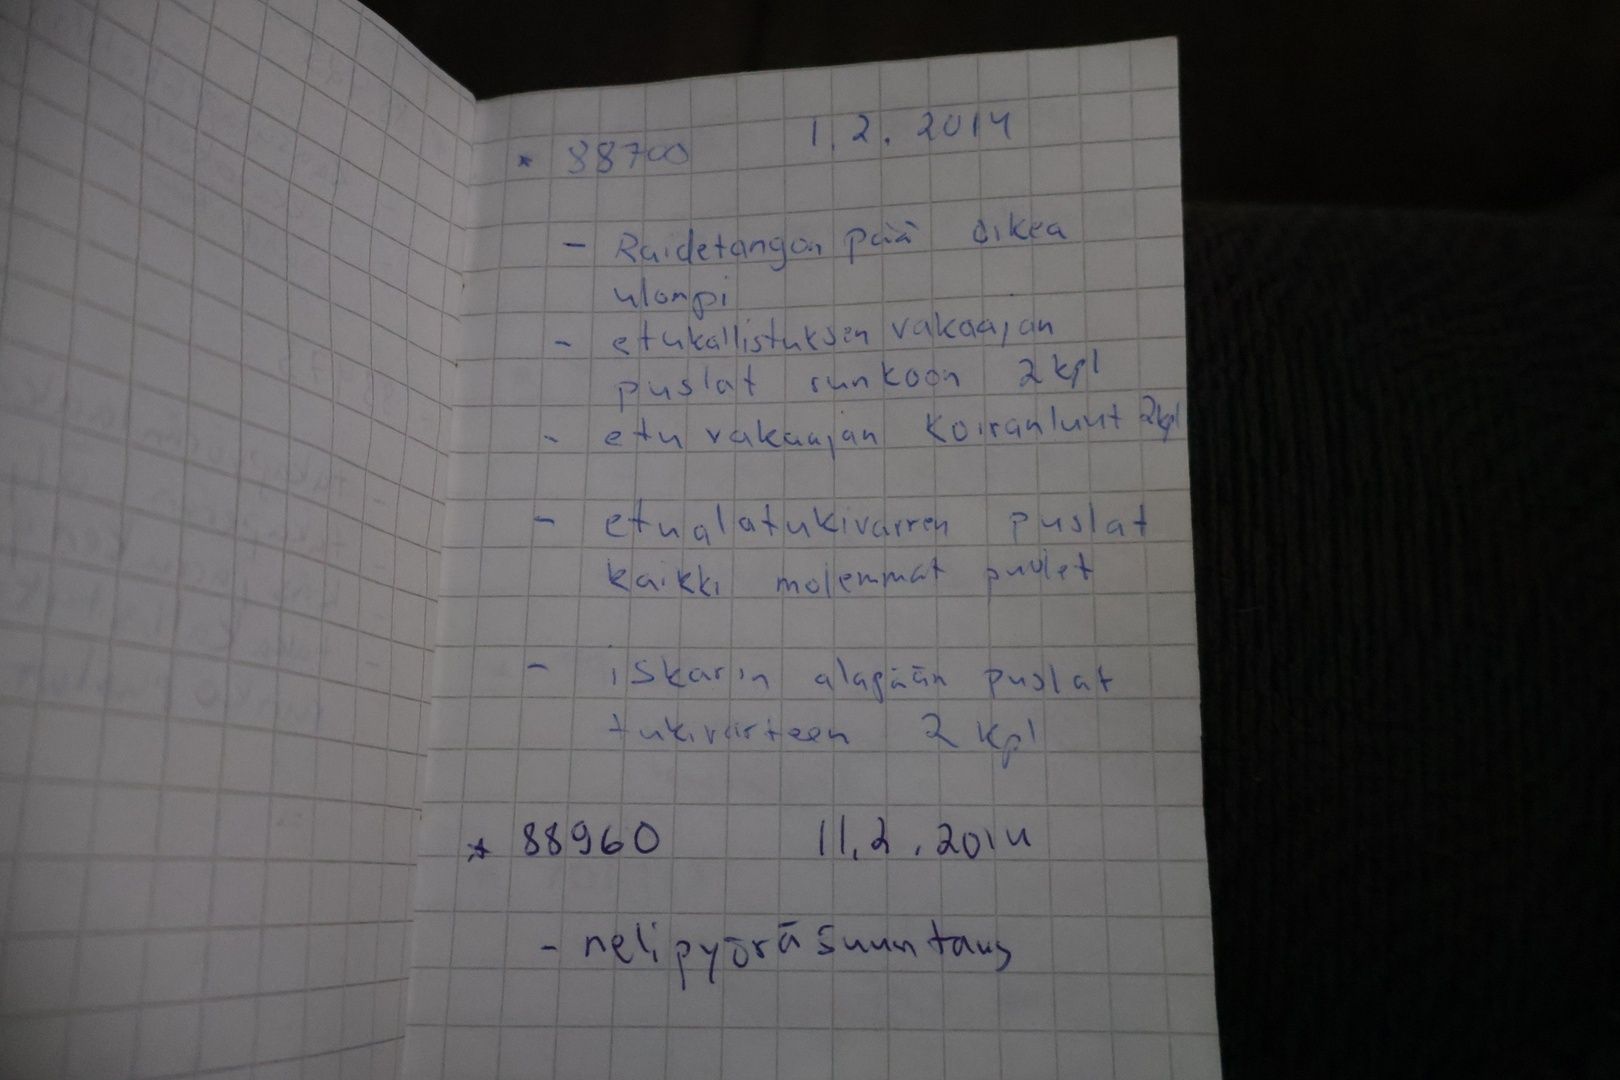 * 88700 1.2.2014
- Raidetangon pää oikea
ulompi
- etukallistuksen vakaajan
puslat runkoon 2 kpl
- etu vakaajan koiranluut 2kpl
- etualatukivarren puslat
kaikki molemmat puolet
- iskarin alapään puslat
tukivarteen 2 kpl
* 88960 11.2.2014
- nelipyöräsuuntaus